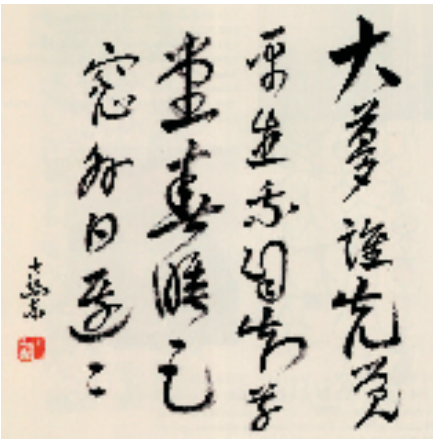 大夢誰先覺
平生我自知草
堂春睡足
窓外日遲々